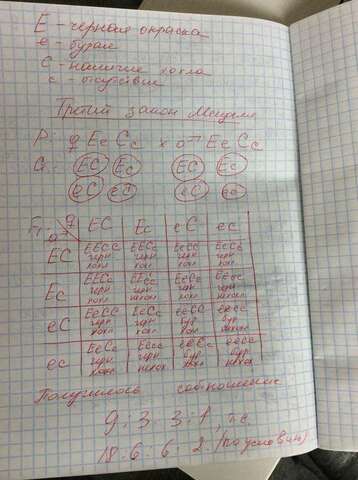 E - черная окраска
e - бурая
C - наличие хохла
c - отсутствие
Третий закон Менделя
P: ♀ EeCc × ♂ EeCc
G: EC Ec EC Ec
eC ec eC ec
F₁ ♀ ♂ EC Ec eC ec
EC EECC черн хохл EECc черн хохл EeCC черн хохл EeCc черн хохл
Ec EECc черн хохл EEcc черн нехохл EeCc черн хохл Eecc черн нехохл
eC EeCC черн хохл EeCc черн хохл eeCC бур хохл eeCc бур хохл
ec EeCc черн хохл Eecc черн нехох eeCc бур хохл eecc бур нехох
Получилось соотношение
9 : 3 : 3 : 1, т.е.
18 : 6 : 6 : 2 (по условию)